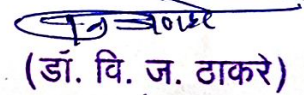 (डॉ. वि. ज. ठाकरे)